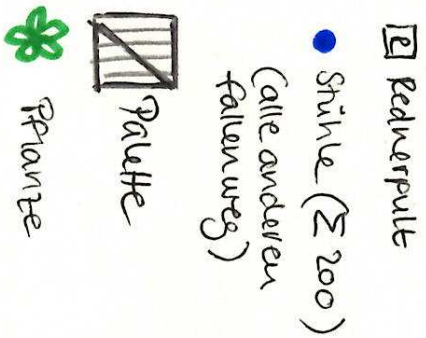 Rednerpult
Stühle (Σ 200)
(alle anderen
fallen weg)
Palette
Pflanze